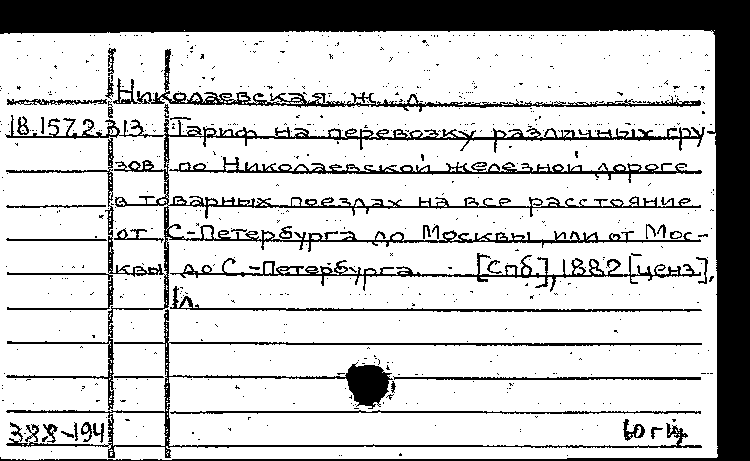 Николаевская ж. д.
18.157.2.313. Тариф на перевозку различных гру-
зов по Николаевской железной дороге
в товарных поездах на все расстояние
от С-Петербурга до Москвы, или от Мос-
квы до С.-Петербурга. [Спб.], 1882 [ценз],
1 л.
388-194